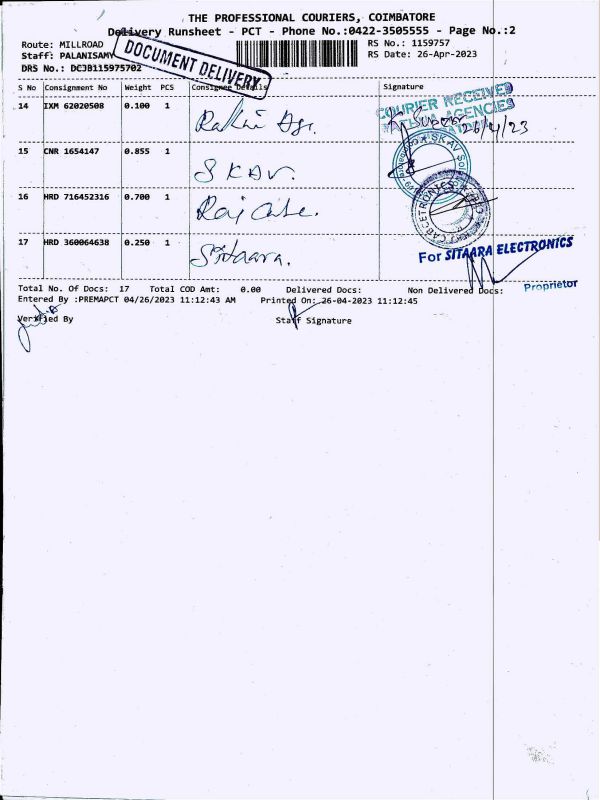 THE PROFESSIONAL COURIERS, COIMBATORE
Delivery Runsheet - PCT - Phone No.:0422-3505555 - Page No.:2
Route: MILLROAD
RS No.: 1159757
Staff: PALANISAMY
RS Date: 26-Apr-2023
DRS No.: DCJB115975702
DOCUMENT DELIVERY
S No Consignment No Weight PCS Consignee Details Signature
14 IXM 62020508 0.100 1
COURIER RECEIVED
AGENCIES
26/4/23
15 CNR 1654147 0.855 1 SKAV.
SKAV
16 HRD 716452316 0.700 1 Raj
17 HRD 360064638 0.250 1 Sitaara.
For SITAARA ELECTRONICS
Proprietor
Total No. Of Docs: 17 Total COD Amt: 0.00 Delivered Docs: Non Delivered Docs:
Entered By :PREMAPCT 04/26/2023 11:12:43 AM Printed On: 26-04-2023 11:12:45
Verified By Staff Signature